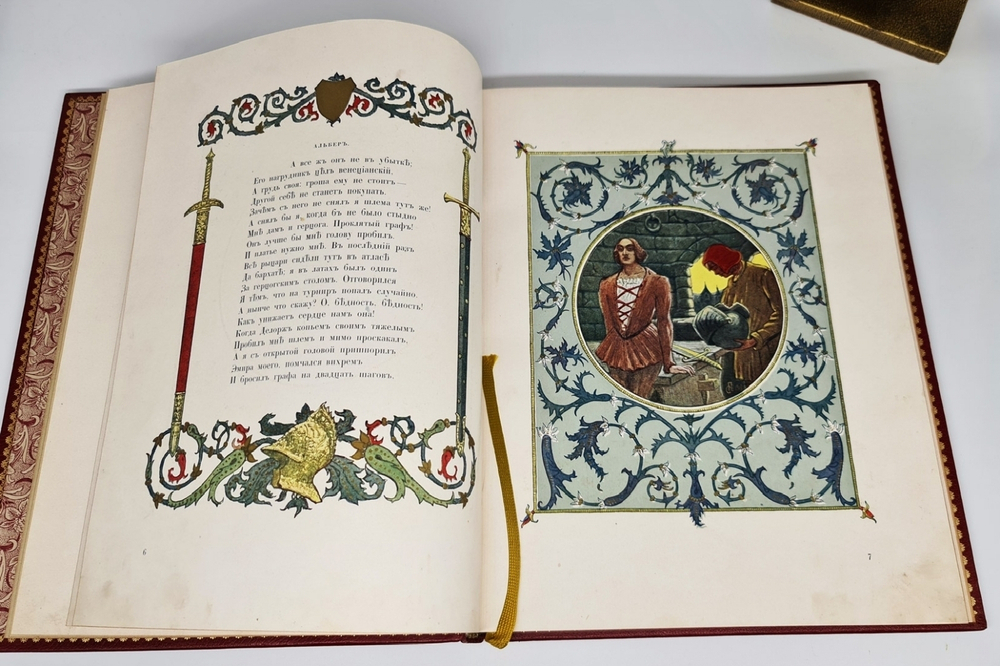 АЛЬБЕРЪ.
А все жъ онъ не въ убыткѣ;
Его нагрудникъ цѣлъ венеціанскій,
А грудь своя: гроша ему не стоитъ—
Другой себѣ не станетъ покупать.
Зачѣмъ съ него не снялъ я шлема тутъ же!
А снялъ бы я, когда бъ не было стыдно
Мнѣ дамъ и герцога. Проклятый графъ!
Онъ лучше бы мнѣ голову пробилъ.
И платье нужно мнѣ. Въ послѣдній разъ
Всѣ рыцари сидѣли тутъ въ атласѣ
Да бархатѣ; я въ латахъ былъ одинъ
За герцогскимъ столомъ. Отговорился
Я тѣмъ, что на турниръ попалъ случайно.
А нынче что скажу? О, бѣдность, бѣдность!
Какъ унижаетъ сердце намъ она!
Когда Делоржъ копьемъ своимъ тяжелымъ
Пробилъ мнѣ шлемъ и мимо проскакалъ,
А я съ открытой головой пришпорилъ
Эмира моего, помчался вихремъ
И бросилъ графа на двадцать шаговъ,
6
7